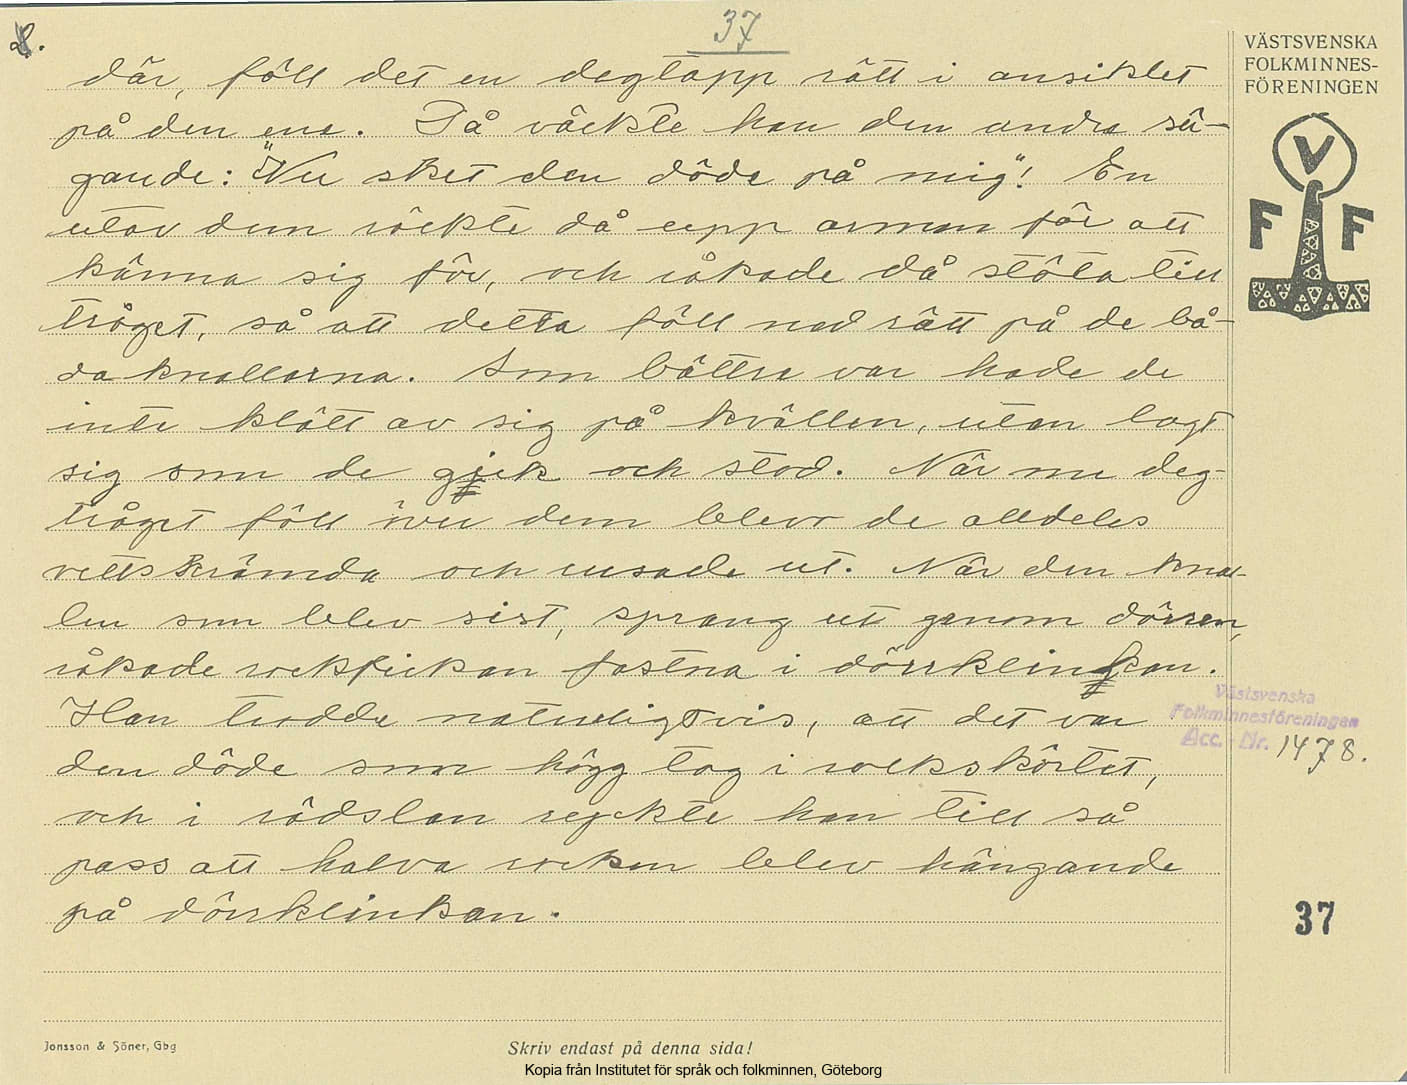 2.
37
där, föll det en degtapp rätt i ansiktet
på den ena. Då väckte han den andra sä-
gande: "Nu sket den döde på mig"! En
utav dem räckte då upp armen för att
känna sig för, och råkade då stöta till
tråget, så att detta föll ned rätt på de bå-
da knallarna. Som bättre var hade de
inte klätt av sig på kvällen, utan lagt
sig som de gick och stod. När nu deg-
tråget föll över dem blevo de alldeles
vettskrämda och rusade ut. När den knal-
len som blev sist, sprang ut genom dörren,
råkade rockfickan fastna i dörrklinkan.
Han trodde naturligtvis, att det var
den döde som högg tag i rockskörtet,
och i rädslan ryckte han till så
pass att halva rocken blev hängande
på dörrklinkan.
VÄSTSVENSKA
FOLKMINNES-
FÖRENINGEN
V
F F
Västsvenska
Folkminnesföreningen
Acc. - Nr. 1478.
37
Jonsson & Söner, Gbg
Skriv endast på denna sida!
Kopia från Institutet för språk och folkminnen, Göteborg